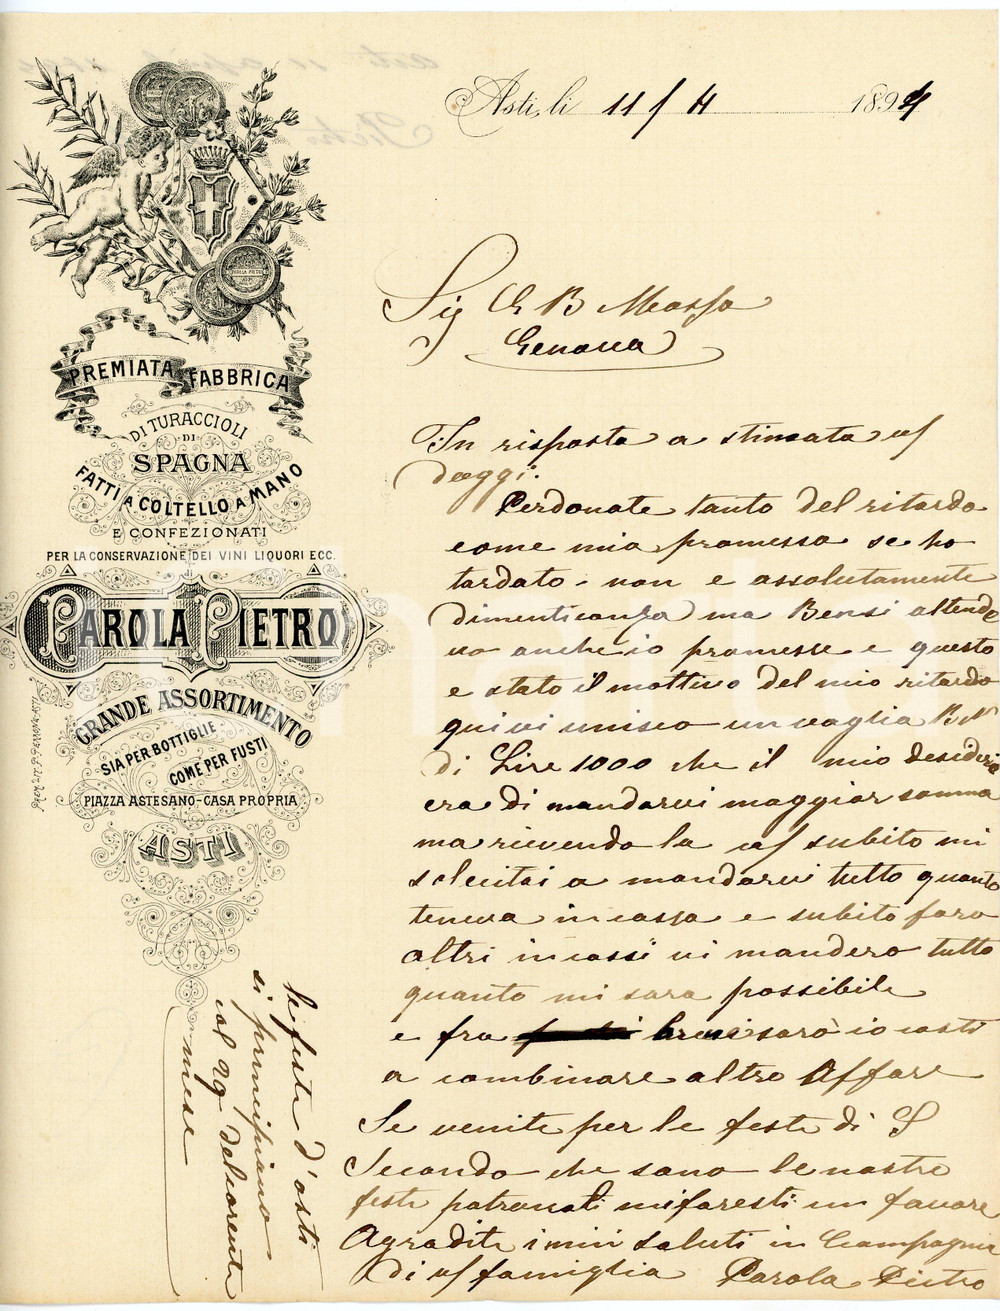 Asti, li 11/4 1894
Sig G B Massa
Genova
PREMIATA FABBRICA
DI TURACCIOLI
DI
SPAGNA
FATTI A COLTELLO A MANO
E CONFEZIONATI
PER LA CONSERVAZIONE DEI VINI LIQUORI ECC.
PAROLA PIETRO
GRANDE ASSORTIMENTO
SIA PER BOTTIGLIE
COME PER FUSTI
PIAZZA ASTESANO-CASA PROPRIA
ASTI
In risposta a stimata vs
doggi:
Perdonate tanto del ritardo
come mia promessa se ho
tardato - non e assolutamente
dimenticanza ma Bensi attende
vo anche io promesse e questo
e stato il mottivo del mio ritardo
quivi unisco un vaglia BN
di Lire 1000 che il mio desiderio
era di mandarvi maggior somma
ma ricevendo la vs subito mi
solecitai a mandarvi tutto quanto
teneva in cassa e subito faro
altri incassi vi mandero tutto
quanto mi sara possibile
e fra brevi sarò io costi
a combinare altro Affare
Se venite per le feste di S
Secondo che sono le nostre
feste patronali mi faresti un favore
Agradite i miei saluti in Compagnia
di vs famiglia Parola Pietro
le feste d'asti
si principiano
al 29 del corente
mese